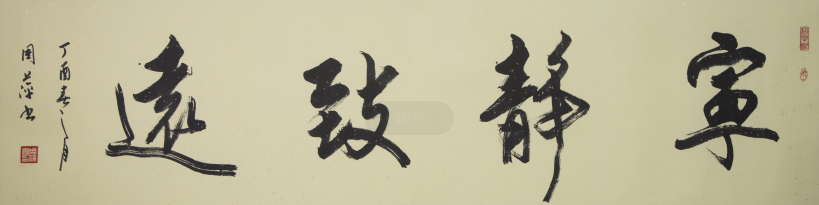 寧靜致遠
丁酉春之月
周萍書